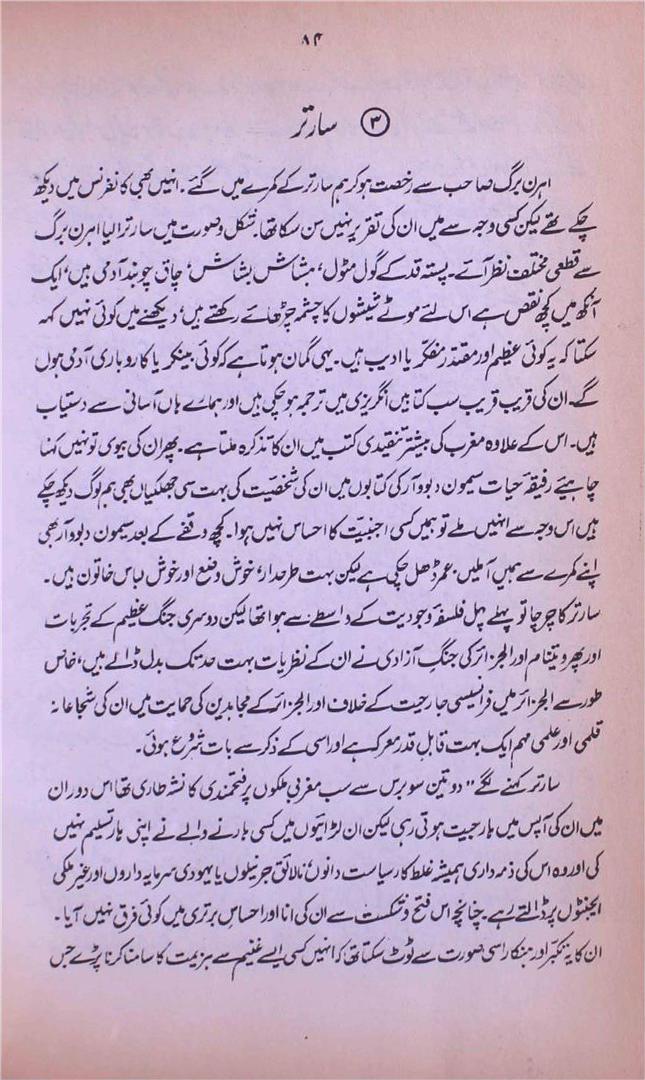 ۸۴
۳ سارتر
اہرن برگ صاحب سے رخصت ہو کر ہم سارتر کے کمرے میں گئے۔ انہیں بھی کانفرنس میں دیکھ
چکے تھے لیکن کسی وجہ سے میں ان کی تقریر نہیں سن سکا تھا۔ شکل و صورت میں سارتر ایلیا اہرن برگ
سے قطعی مختلف نظر آئے۔ پستہ قد کے گول مٹول، ہشاش بشاش، چاق چوبند آدمی ہیں، ایک
آنکھ میں کچھ نقص ہے اس لئے موٹے شیشوں کا چشمہ چڑھائے رکھتے ہیں، دیکھنے میں کوئی نہیں کہہ
سکتا کہ یہ کوئی عظیم اور مقتدر مفکّر یا ادیب ہیں۔ یہی گمان ہوتا ہے کہ کوئی بینکر یا کاروباری آدمی ہوں
گے۔ ان کی قریب قریب سب کتابیں انگریزی میں ترجمہ ہو چکی ہیں اور ہمارے ہاں آسانی سے دستیاب
ہیں۔ اس کے علاوہ مغرب کی بیشتر تنقیدی کتب میں ان کا تذکرہ ملتا ہے۔ پھر ان کی بیوی تو نہیں کہنا
چاہیئے رفیقۂ حیات سیمون دبووآر کی کتابوں میں ان کی شخصیت کی بہت سی جھلکیاں بھی ہم لوگ دیکھ چکے
ہیں اس وجہ سے انہیں ملے تو ہمیں کسی اجنبیّت کا احساس نہیں ہوا۔ کچھ وقفے کے بعد سیمون دبووآر بھی
اپنے کمرے سے ہمیں آملیں۔ عمر ڈھل چکی ہے لیکن بہت طرحدار، خوش وضع اور خوش لباس خاتون ہیں۔
سارتر کا چرچا تو پہلے پہل فلسفۂ وجودیت کے واسطے سے ہوا تھا لیکن دوسری جنگ عظیم کے تجربات
اور پھر ویتنام اور الجزائر کی جنگِ آزادی نے ان کے نظریات بہت حد تک بدل ڈالے ہیں، خاص
طور سے الجزائر میں فرانسیسی جارحیت کے خلاف اور الجزائر کے مجاہدین کی حمایت میں ان کی شجاعانہ
قلمی اور علمی مہم ایک بہت قابلِ قدر معرکہ ہے اور اسی کے ذکر سے بات شروع ہوئی۔
سارتر کہنے لگے "دو تین سو برس سے سب مغربی ملکوں پر فتحمندی کا نشہ طاری تھا اس دوران
میں ان کی آپس میں ہار جیت ہوتی رہی لیکن ان لڑائیوں میں کسی ہارنے والے نے اپنی ہار تسلیم نہیں
کی اور وہ اس کی ذمہ داری ہمیشہ غلط کار سیاست دانوں، نالائق جرنیلوں یا یہودی سرمایہ داروں اور غیر ملکی
ایجنٹوں پر ڈالتے رہے۔ چنانچہ اس فتح و شکست سے ان کی انا اور احساسِ برتری میں کوئی فرق نہیں آیا۔
ان کا یہ تکبّر اور اسی صورت سے ٹوٹ سکتا تھا کہ انہیں کسی ایسے غنیم سے ہزیمت کا سامنا کرنا پڑے جس